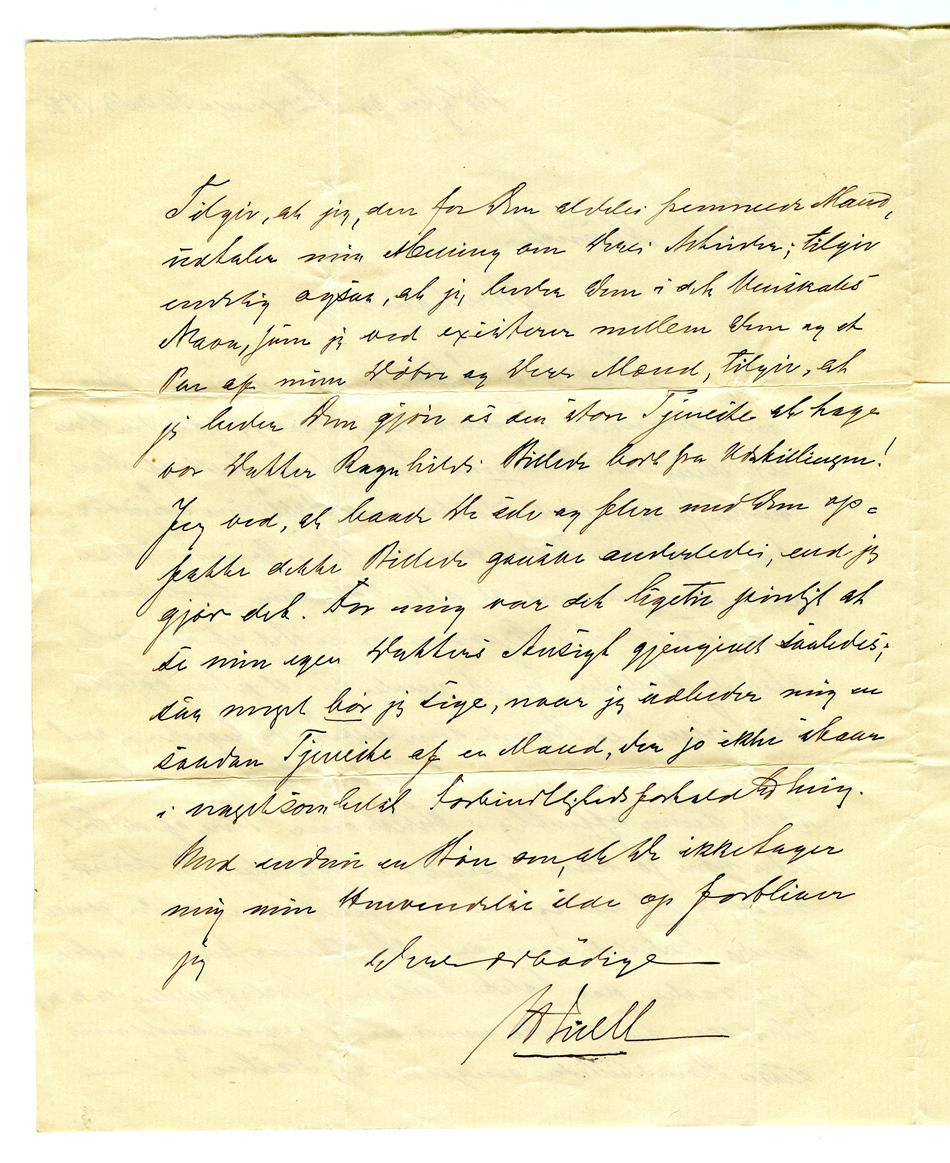 Tilgiv, at jeg, den for Dem aldeles fremmede Mand,
udtaler min Mening om Deres Arbeider; tilgiv
endelig ogsaa, at jeg beder Dem i det Venskabs
Navn, som jeg ved existerer mellem Dem og et
Par af mine Døtre og deres Mænd, tilgiv, at
jeg beder Dem gjøre os den store Tjeneste at tage
vor Datter Ragnhilds Billede bort fra Udstillingen!
Jeg ved, at baade De selv og flere med Dem op=
fatte dette Billede ganske anderledes, end jeg
gjør det. For mig var det ligetil pinligt at
se min egen Datters Ansigt gjengivet saaledes;
saa meget bør jeg sige, naar jeg udbeder mig en
saadan Tjeneste af en Mand, der jo ikke staar
i nogetsomhelst Forbindtlighedsforhold til mig.
Med endnu en Bøn om, at De ikke tager
mig min Henvendelse ilde op forbliver
jeg Deres ærbødige